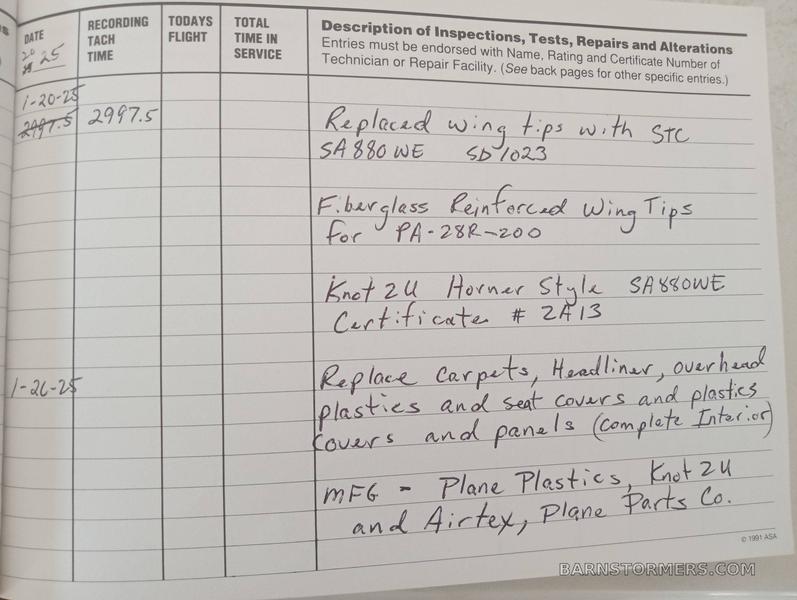 DATE
RECORDING TACH TIME
TODAYS FLIGHT
TOTAL TIME IN SERVICE
Description of Inspections, Tests, Repairs and Alterations
Entries must be endorsed with Name, Rating and Certificate Number of
Technician or Repair Facility. (See back pages for other specific entries.)
20 25
1-20-25
2997.5 2997.5
Replaced wing tips with STC
SA880WE SD1023
Fiberglass Reinforced Wing Tips
for PA-28R-200
Knot 2U Horner Style SA880WE
Certificate # 2A13
1-26-25
Replace Carpets, Headliner, overhead
plastics and seat covers and plastics
Covers and panels (Complete Interior)
MFG - Plane Plastics, Knot 2U
and Airtex, Plane Parts Co.
© 1991 ASA
BARNSTORMERS.COM